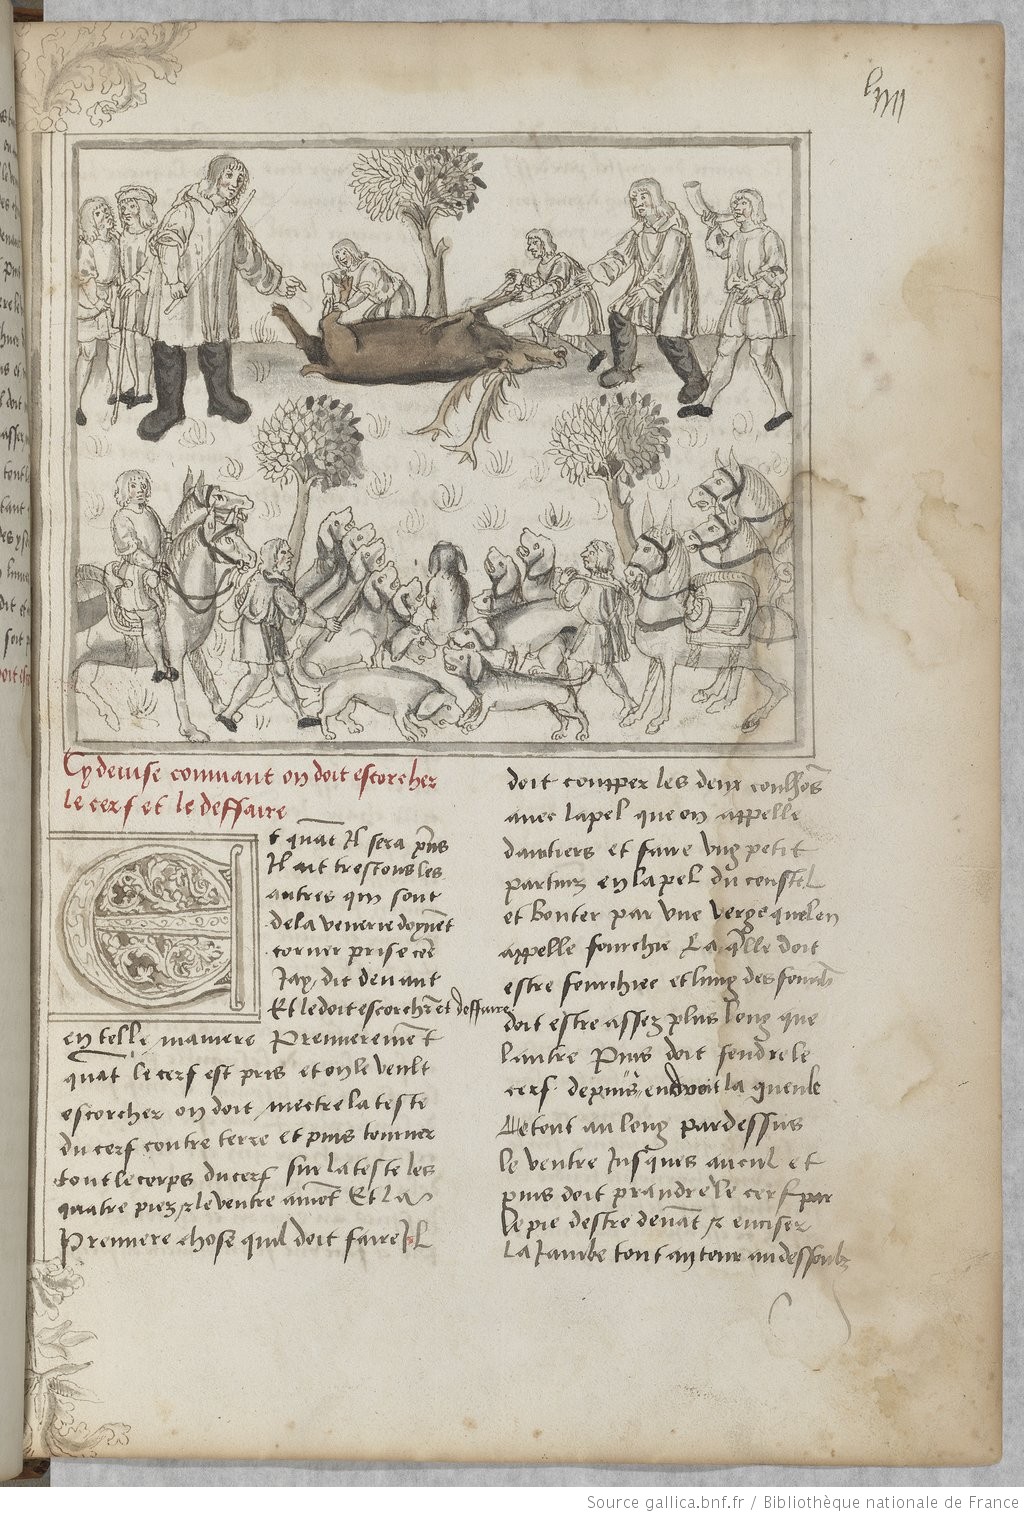 Cy devise commant on doit escorcher
le cerf et le deffaire
Et quāt Il sera pⁱns
Il ait trestous les
autres qui sont
de la venerie doyuēt
corner prise cōe
Jay dit devant
Et le doit escorchr̄ et deffaire
en telle maniere Premieremēt
quāt le cerf est pris et on le veult
escorcher on doit mectre la teste
du cerf contre terre et puis tourner
tout le corps du cerf sur la teste les
quatre piez et le ventre
Premiere chose quil doit faire Il
doit coupper les deux coulhōs
avec la pel que on appelle
daintiers et faire ung petit
partuiz en la pel du
et bouter par une verge quelen
appelle fourchie La q̄lle doit
estre fourchiee et lung des fourchōs
doit estre assez plus long que
lautre Puis doit fendre le
cerf depuis endroit la gueule
tout au long par dessus
le ventre Jusques au cul et
puis doit prandre le cerf par
le pie destre devāt et enciser
la Jambe tout au tour au dessoubz
Source gallica.bnf.fr / Bibliothèque nationale de France